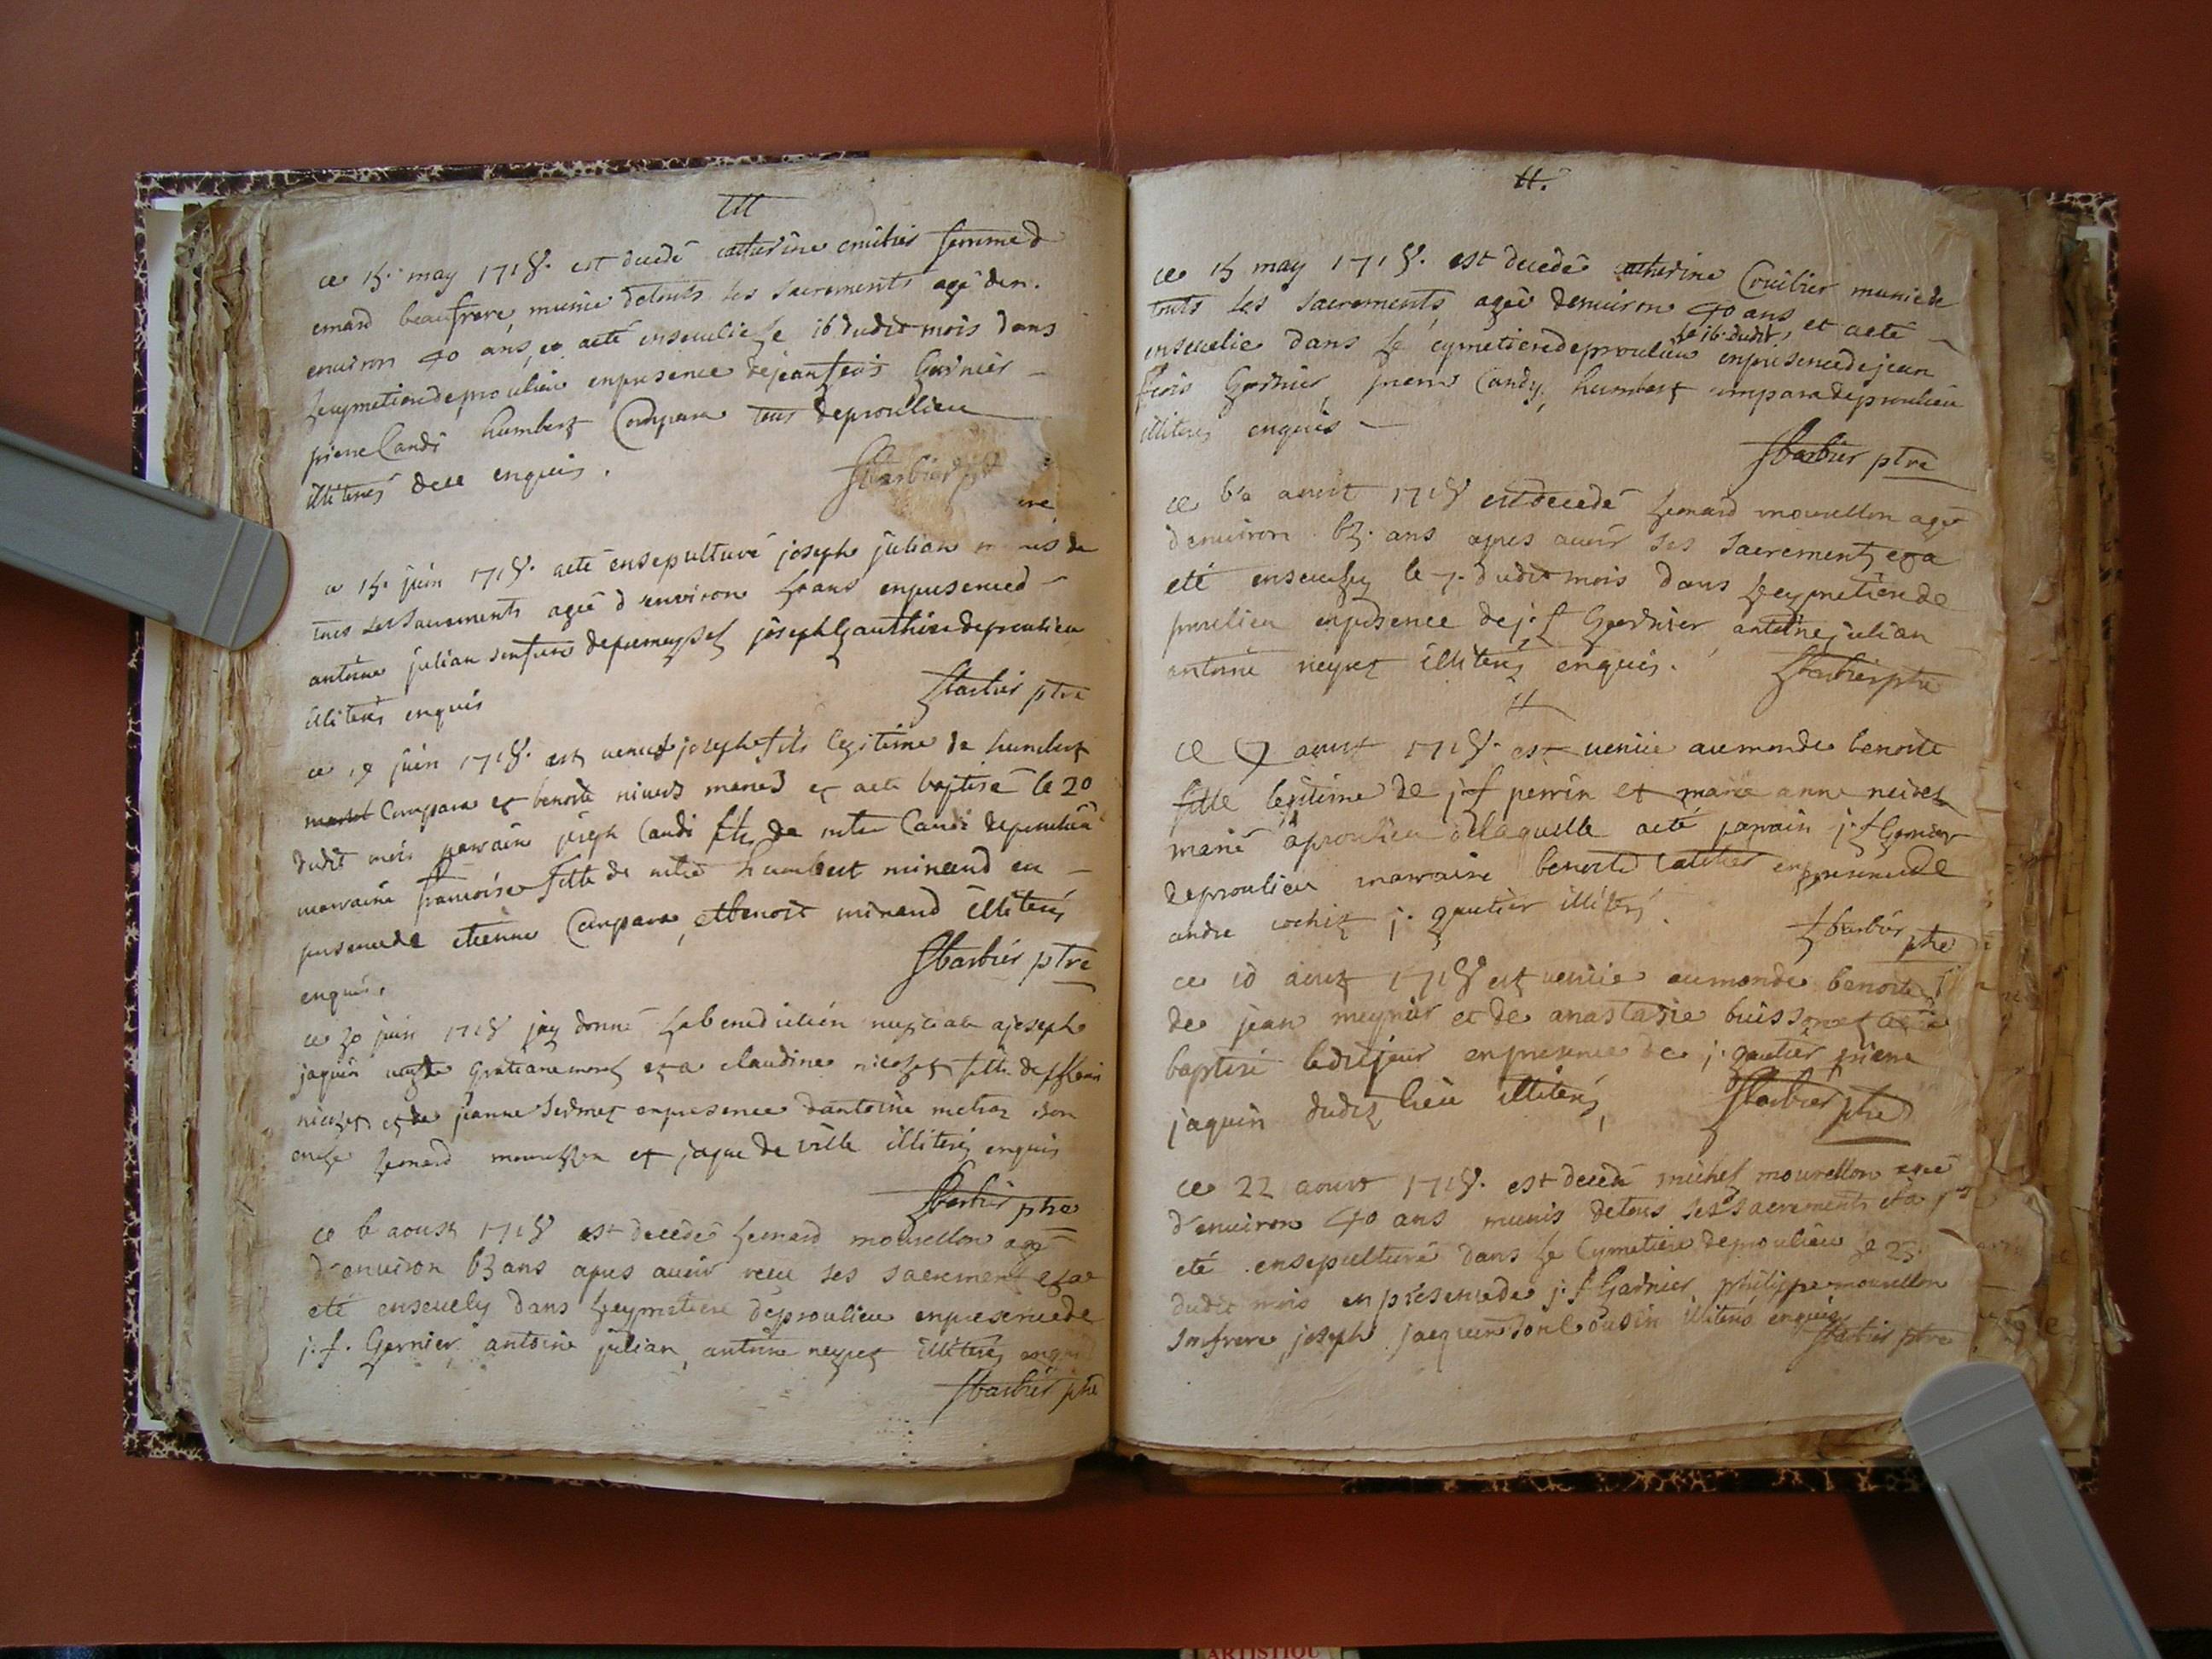 ce 15. may 1718. est decedé catherine crüibier femme d
emard beaufrere, munie detouts les sacrements agé den.
environ 40 ans, et aeté ensevelie le 16 dudit mois dans
le cymetiere de proulieu en presence de jean fcois Garnier
pierre Candi humbert Compare tous de proulieu
illiterés dece enquis.
Sbarbier ptre
ce 15. juin 1718. aeté ensepulturé joseph julian munis de
tous les sacrements agée d'environ ans en presence d
antoine julian son frere joseph gauthier de proulieu
illiterés enquis
Sbarbier ptre
ce 19 juin 1718. est venu joseph fils legitime de humbert
Compare et benoite mariés et aeté baptisé le 20
dudit mois parrain joseph Candi fils de Candi de proulieu
marraine francoise fille de humbert minand en
presence de etienne Compare, et benoit minand illiterés
enquis.
Sbarbier ptre
ce 20 juin 1718 jay donné la benediction nuptiale a joseph
jaquin et a claudine nicolet fille de
nicolet et de jeanne en presence dantoine son
oncle lenard mourellon et jaque de ville illiterés enquis
Sbarbier ptre
ce 6 aoust 1718 est decedé lenard mourellon agé
d'environ 63 ans apres avoir receu ses sacrement et a
eté ensevely dans le cymetiere de proulieu en presence de
j. f. Garnier, antoine julian, antoine neyret illiterés enquis
Sbarbier ptre
11.
ce 15 may 1718. est decedée catherine Crüibier munie de
touts les sacrements, agée denviron 40 ans, et aeté
le 16. dudit
ensevelie dans le cymetiere de proulieu en presence de jean
fcois Garnier, pierre Candy, humbert compara de proulieu
illiteres enquis
Sbarbier ptre
ce 6e aoust 1718 est decedé lenard mourellon agé
d'environ 63. ans apres avoir ses sacrement et a
eté ensevely le 7. dudit mois dans le cymetiere de
proulieu en presence de j. f Garnier antoine julian
antoine neyret illiterés enquis.
Sbarbier ptre
ce 9 aoust 1718. est venüe au monde benoite
fille legitime de j f perrin et marie anne neiret
marié a proulieu de laquelle aeté parrain j. f Garnier
de proulieu marraine benoite en presence de
andre cochet j. gautier illiterés.
Sbarbier ptre
ce 10 aoust 1718 est venüe au monde benoite
de jean meynier et de anastasie buissonet
baptisé ledit jour en presence de j. gautier pierre
jaquin dudit lieu illiterés,
Sbarbier ptre
ce 22 aoust 1718. est decedé michel mourellon agé
d'environ 40 ans munis de tous ses sacrements et a
eté ensepulturé dans le Cymetiere de proulieu le 23.
dudit mois en presence de j. f Garnier philippe mourellon
son frere, joseph jacquin son Cousin illiterés enquis
Sbarbier ptre